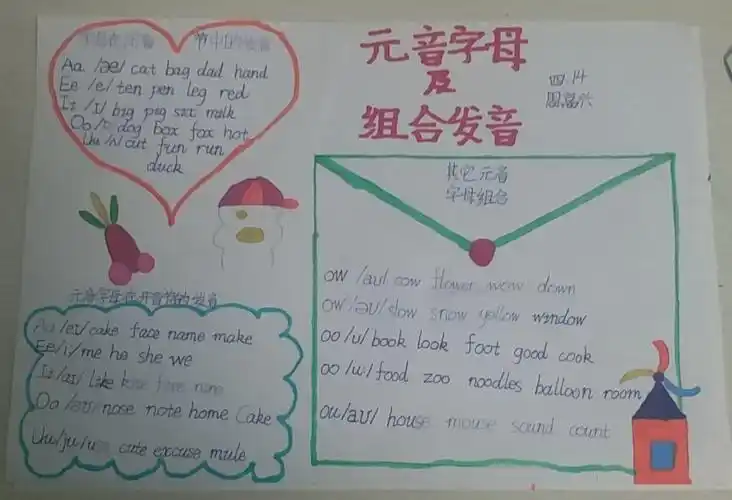 元音字母
及
组合发音
四.14
节中的发音
Aa /æ/ cat bag dad hand
Ee /e/ ten pen leg red
Ii /ɪ/ big pig six milk
Oo dog box fox hot
Uu /ʌ/ cut fun run
duck
元音字母在开音节的发音
Aa /eɪ/ cake face name make
Ee /i:/ me he she we
Ii /aɪ/ like
Oo nose note home Cake
Uu /ju:/ use cute excuse mule
其它元音
字母组合
ow /au/ cow flower wow down
ow /əu/ slow snow yellow window
oo /u/ book look foot good cook
oo /u:/ food zoo noodles balloon room
ou /aʊ/ house mouse sound count